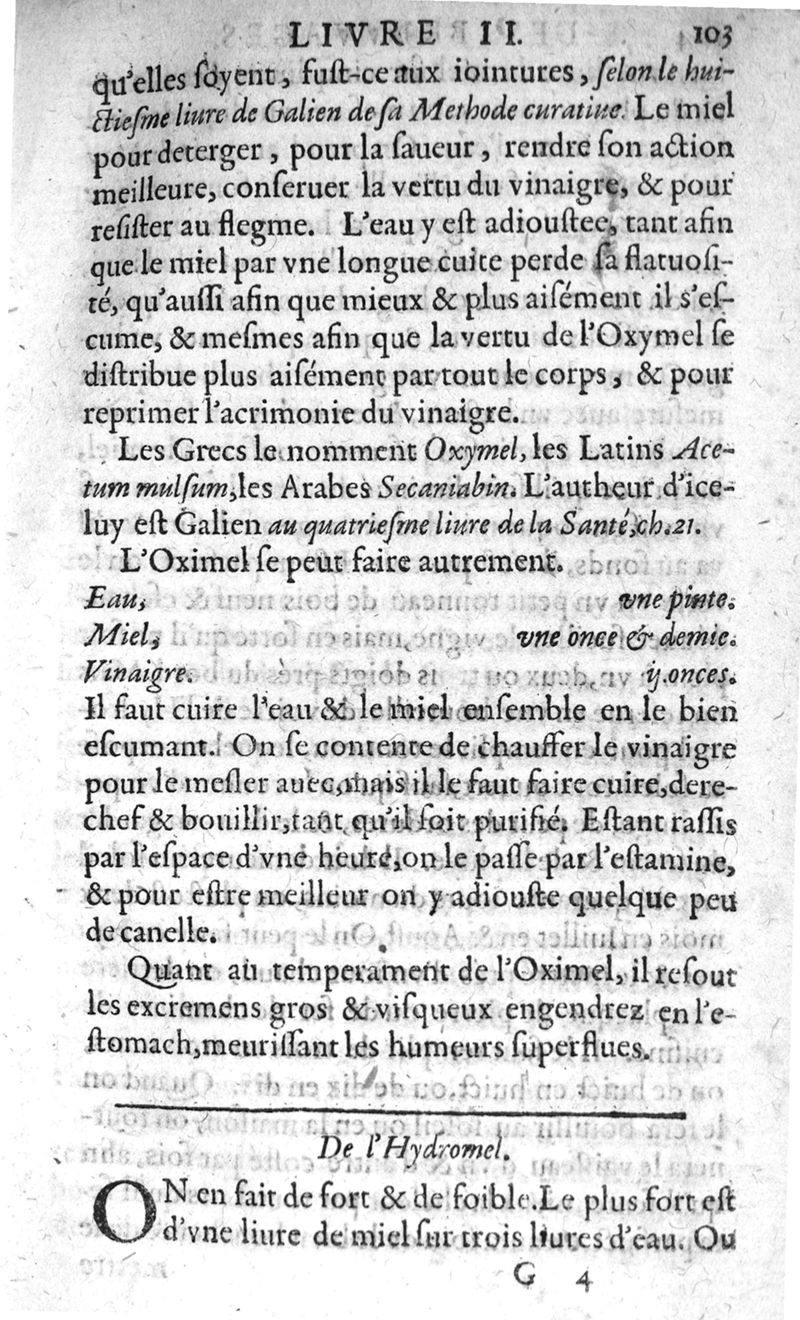 LIVRE II. 103
qu'elles ſoyent, fuſt-ce aux iointures, ſelon le hui-
ctieſme liure de Galien de ſa Methode curatiue. Le miel
pour deterger, pour la ſaueur, rendre ſon action
meilleure, conſeruer la vertu du vinaigre, & pour
reſiſter au flegme. L'eau y eſt adiouſtee, tant afin
que le miel par vne longue cuite perde ſa flatuoſi-
té, qu'auſſi afin que mieux & plus aiſément il s'eſ-
cume, & meſmes afin que la vertu de l'Oxymel ſe
diſtribue plus aiſément par tout le corps, & pour
reprimer l'acrimonie du vinaigre.
Les Grecs le nomment Oxymel, les Latins Ace-
tum mulſum, les Arabes Secaniabin. L'autheur d'ice-
luy eſt Galien au quatrieſme liure de la Santé, ch. 21.
L'Oximel ſe peut faire autrement.
Eau, vne pinte.
Miel, vne once & demie.
Vinaigre. ij. onces.
Il faut cuire l'eau & le miel enſemble en le bien
eſcumant. On ſe contente de chauffer le vinaigre
pour le meſler auec, mais il le faut faire cuire, dere-
chef & bouillir, tant qu'il ſoit purifié. Eſtant raſſis
par l'eſpace d'vne heure, on le paſſe par l'eſtamine,
& pour eſtre meilleur on y adiouſte quelque peu
de canelle.
Quant au temperament de l'Oximel, il reſout
les excremens gros & viſqueux engendrez en l'e-
ſtomach, meuriſſant les humeurs ſuperflues.
De l'Hydromel.
ON en fait de fort & de foible. Le plus fort eſt
d'vne liure de miel ſur trois liures d'eau. Ou
G 4